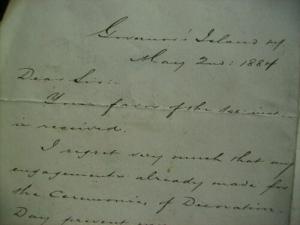 Governor's Island NY
May 2nd: 1884
Dear Sir:
Your favor of the 1st inst.
is received.
I regret very much that my
engagements already made for
the Ceremonies of Decoration
Day prevent